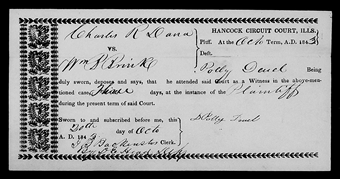 Charles R Dana HANCOCK CIRCUIT COURT, ILLS.
VS. Plff. At the Octo Term, A.D. 1843
Deft.
Wm Polly Duel Being
duly sworn, deposes and says, that he attended said Court as a Witness in the above-men-
tioned cause, Three days, at the instance of the Plaintiff
during the present term of said Court.
Sworn to and subscribed before me, this
20th day of Octo
A.D. 184 Polly Duel
J B Backenstos Clerk.
By